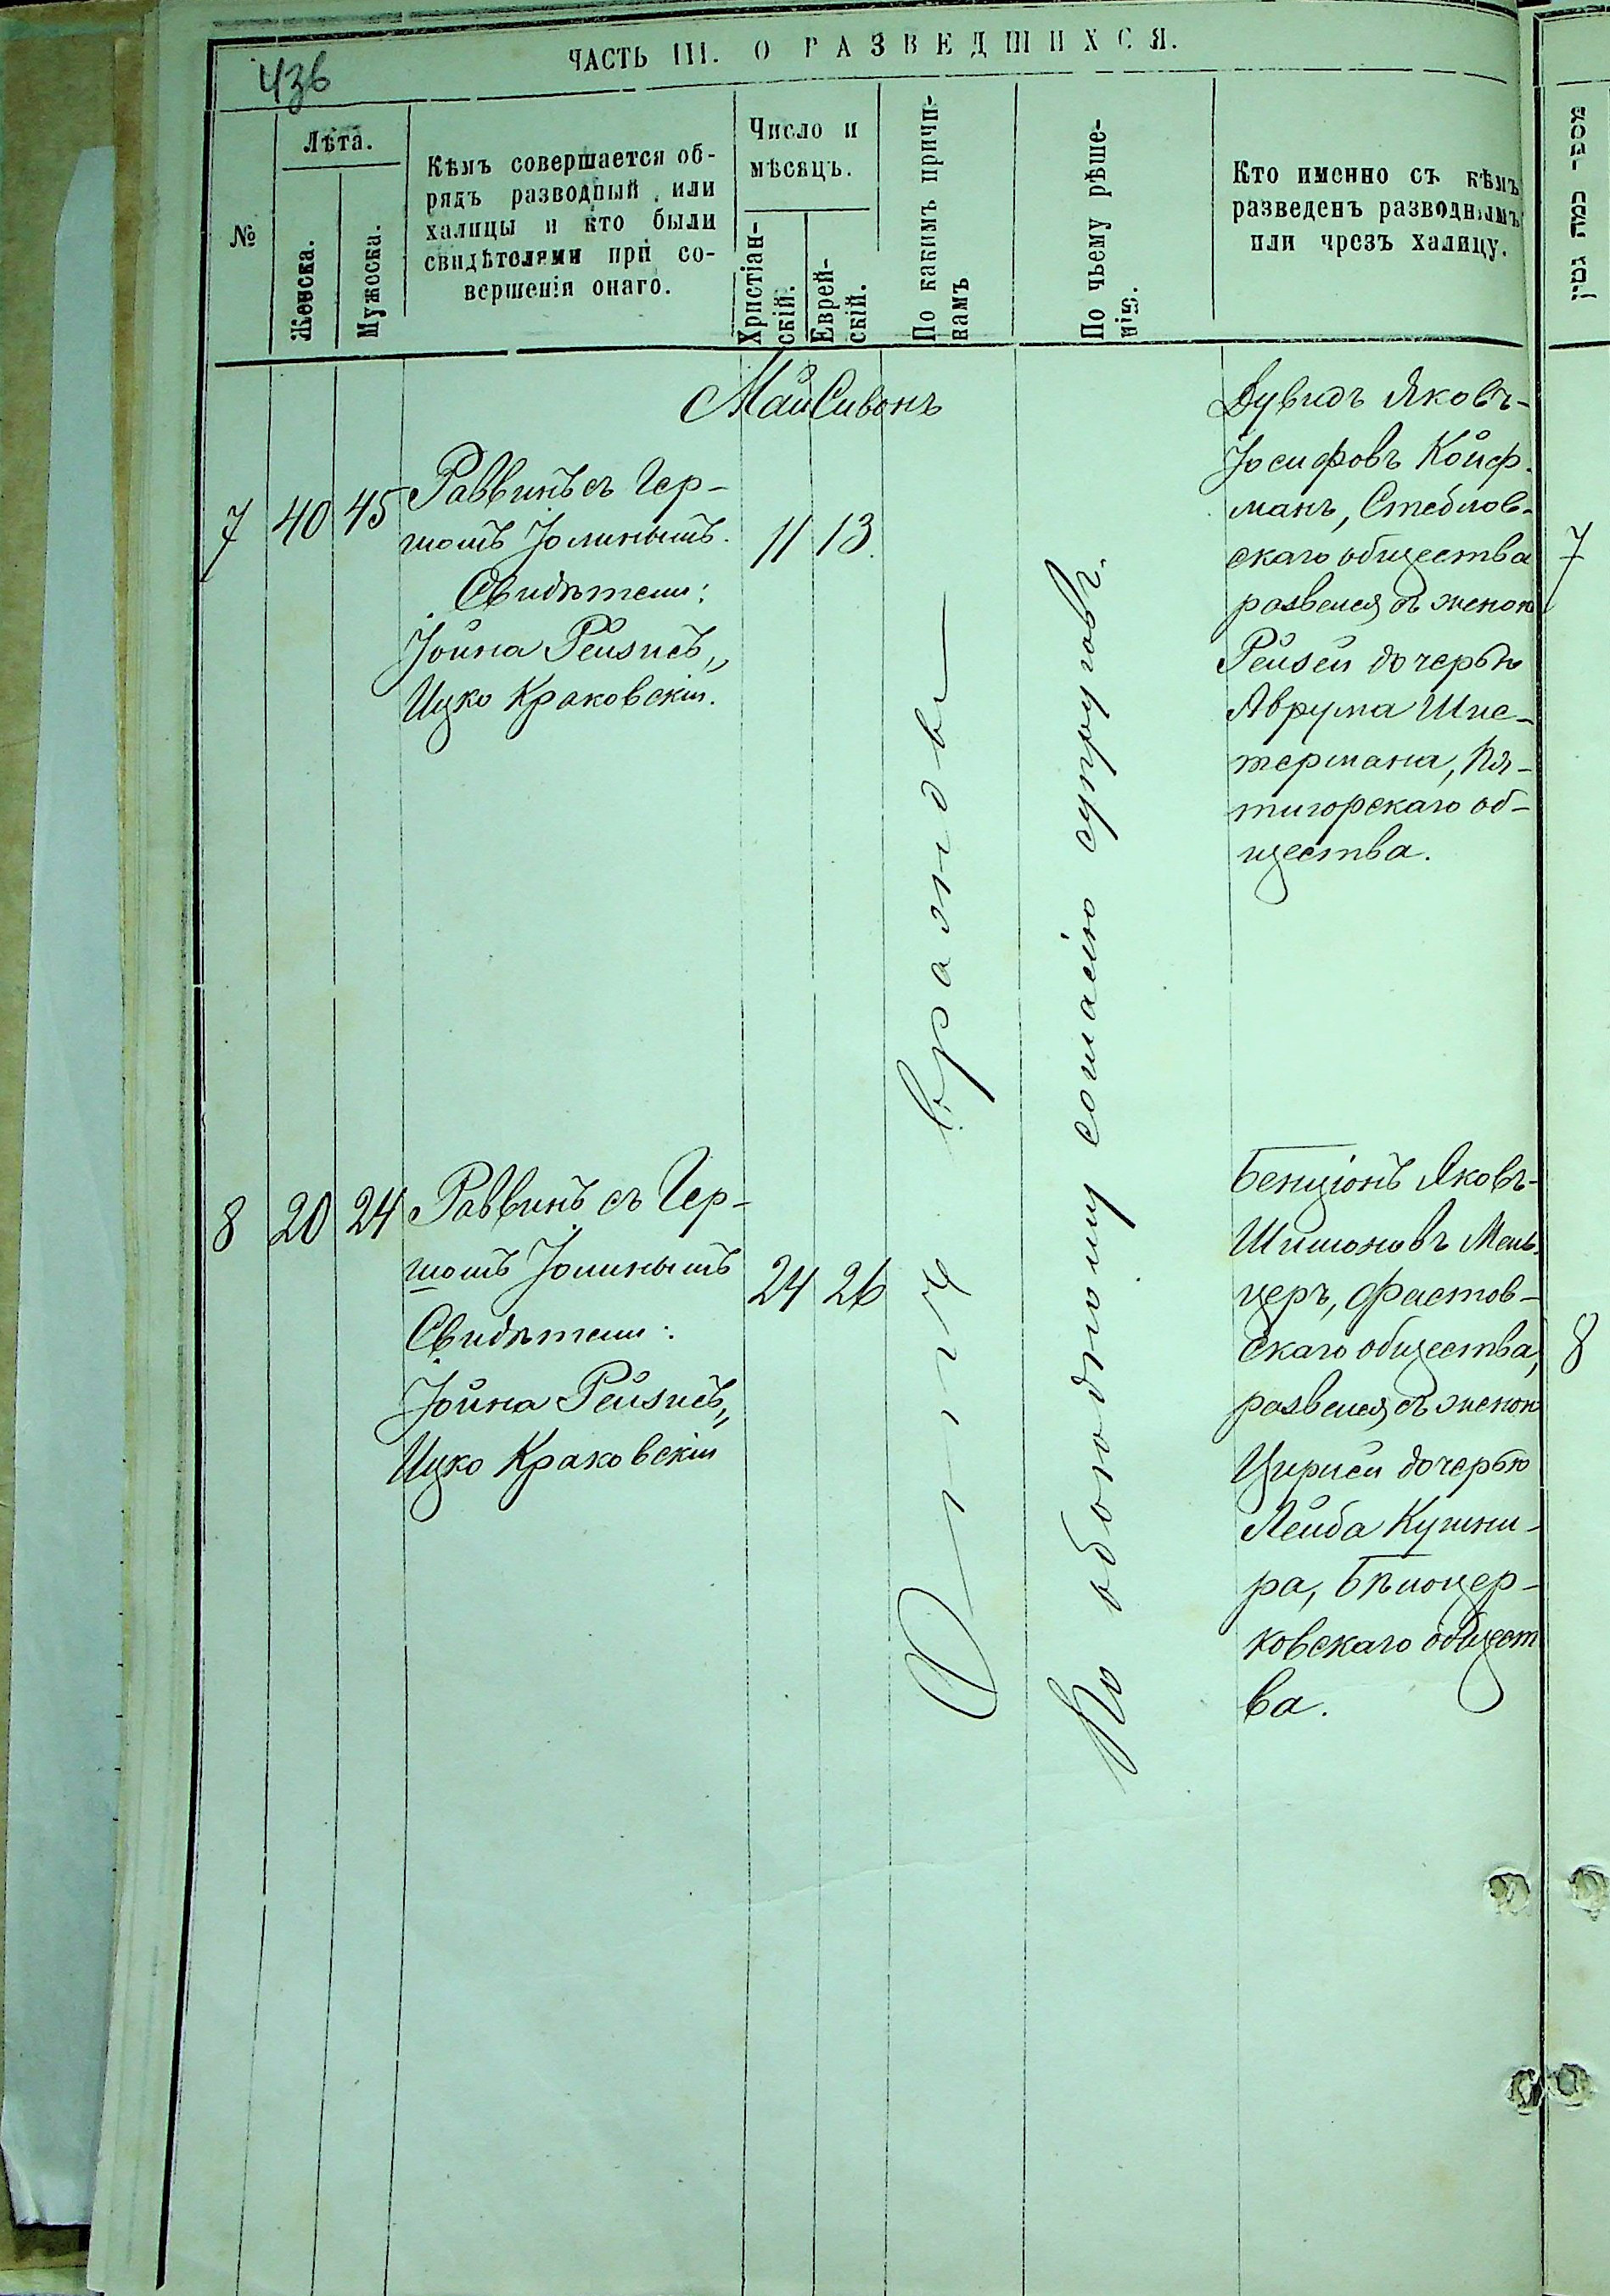 ЧАСТЬ III. О РАЗВЕДШИХСЯ.
436
№
Лѣта.
Женска.
Мужеска.
Кѣмъ совершается об-
рядъ разводный или
халицы и кто были
свидѣтелями при со-
вершенія онаго.
Число и
мѣсяцъ.
Христіан-
скій.
Еврей-
скій.
По какимъ причи-
намъ
По чьему рѣше-
нію.
Кто именно съ кѣмъ
разведенъ разводнымъ
или чрезъ халицу.
Май Сивонъ
7 40 45
Раввинъ съ Гер-
шомъ
Свидѣтели:
Іойна Рейзисъ,,
Ицко Краковскій.
11 13.
Дувидъ Яковъ-
Іосифовъ Койф-
манъ, Стеблов-
скаго общества
развелся съ женою
Рейзей дочерью
Аврума Шис-
термана, Пя-
тигорскаго об-
щества.
7
Отъ вражды
По обоюдному согласію супруговъ.
8 20 24
Раввинъ съ Гер-
шомъ
Свидѣтели:
Іойна Рейзисъ,,
Ицко Краковскій
24 26
Бенціонъ Яковъ-
Шимоновъ Мель-
церъ, Фастов-
скаго общества,
развелся съ женою
Цирлей дочерью
Лейба Кушни-
ра, Бѣлоцер-
ковскаго общест
ва.
8
מספר כמה גטין